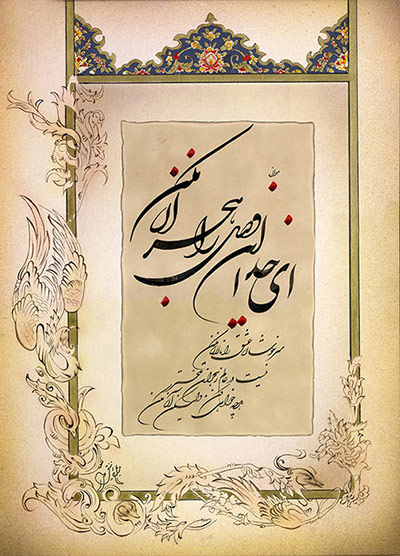 مولانا
ای خدا این وصل را هجران مکن
سرخوشان عشق را نالان مکن
نیست در عالم ز هجران تلختر
هرچه خواهی کن ولیکن آن مکن